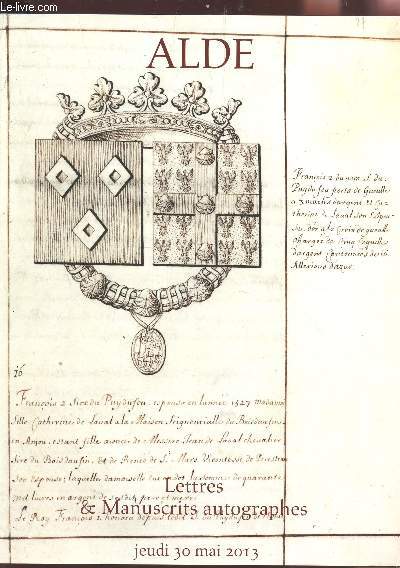 Le-livre.com
ALDE
François 2 du nom S. du
Puy du fou porte de Gueulle
a 3 macles d'argent et Ca-
therine de Laual son Espou-
se, d'or a la Croix de gueulle
chargée de cinq coquilles
d'argent Cantonnée de 16
Allerions d'azur.
16
François 2 Sire du Puy du fou, espousa en l'année 1527 madame
fille Catherine de Laual a la Maison Seigneurialle du Boisdaufin
en Anjou, estant fille aisnée de Messire Jean de Laual cheualier
Sire du Boisdaufin, et de Renée de St. Mars Vicomtesse de
son espouse; laquelle damoiselle eut en dot la somme de quarante
mil liures en argent de ses dits pere et mere.
Le Roy François I honora
Lettres
& Manuscrits autographes
jeudi 30 mai 2013